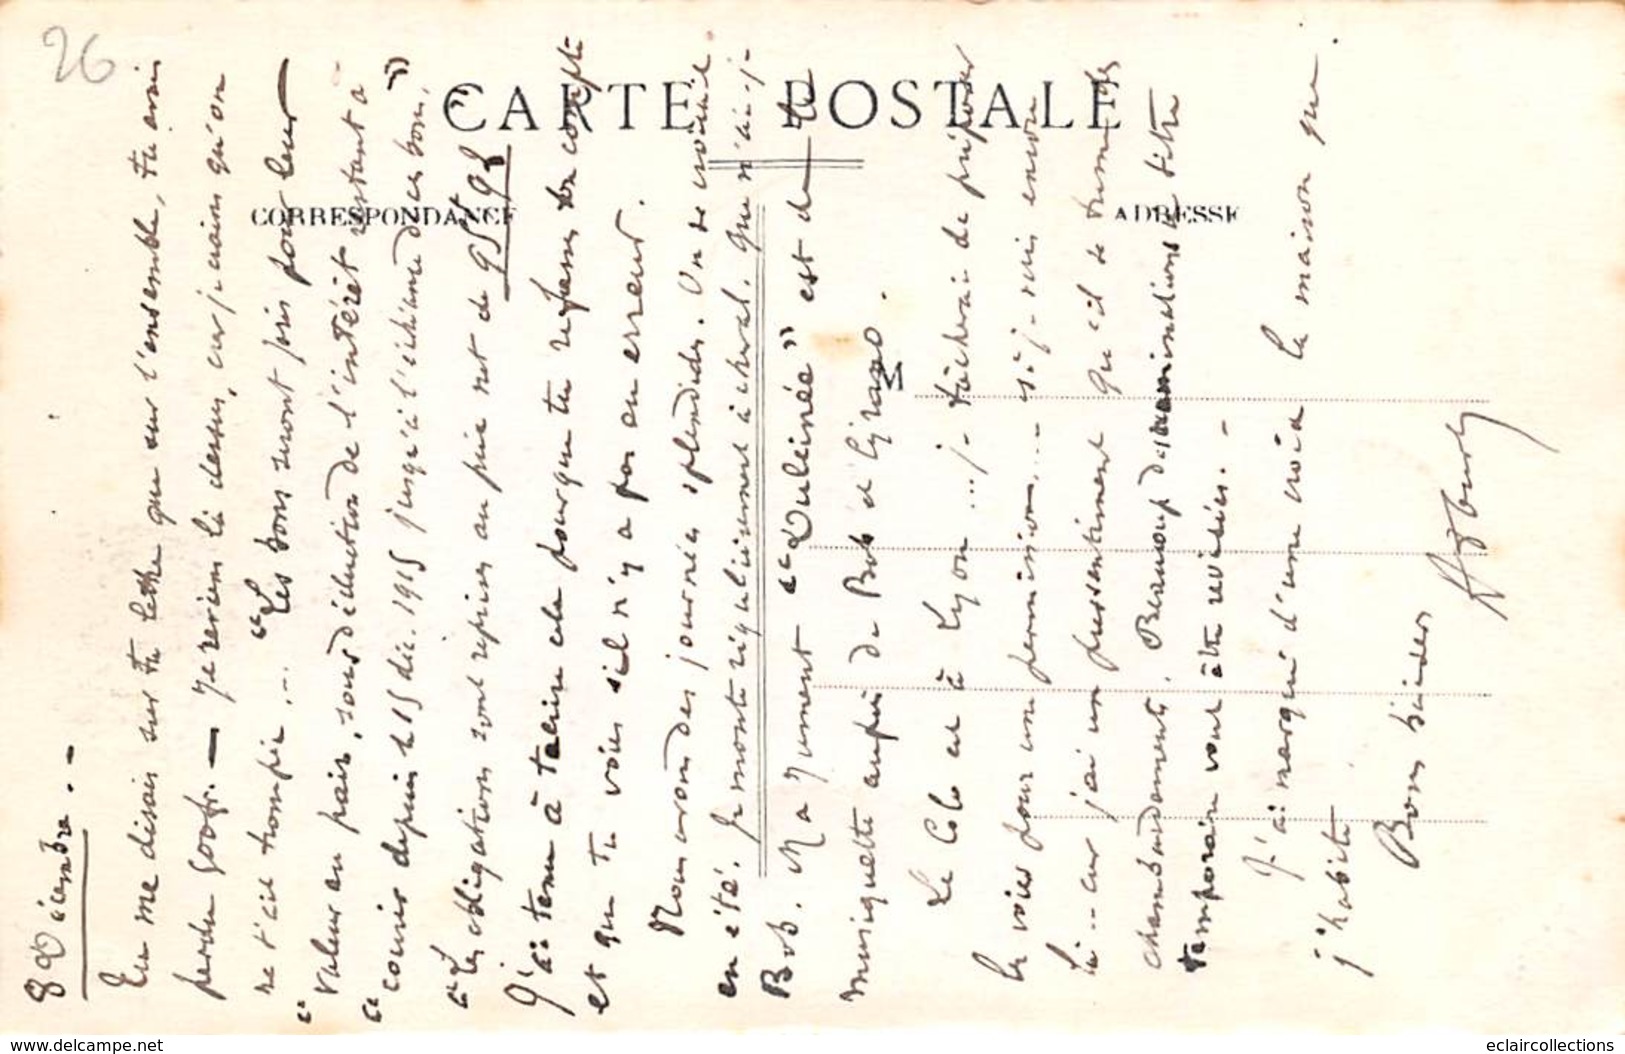 26
CARTE POSTALE
CORRESPONDANCE
ADRESSE
M
8 Décembre. -
Tu me disais sur ta lettre que sur l'ensemble, tu avais
perdu 900 fr. — Je reviens là dessus, car je crains qu'on
ne t'ait trompée... "Les bons seront pris pour leur
" valeur au pair, sous déduction de l'intérêt restant à
" courir depuis le 15 déc. 1915 jusqu'à l'échéance des bons, "
" Les obligations sont reprises au prix net de 95f 98 "
J'ai tenu à te dire cela pour que tu refasses ton compte
et que tu voies s'il n'y a pas eu erreur.
Nous avons des journées splendides. On se croirait
en été. Je monte régulièrement à cheval. Que n'ai-je
Bob. Ma jument "Dulcinée" est de la
musiquette auprès de Bob et Gyrano.
Le Colo est à Lyon... je tâcherai de préparer
les voies pour une permission... si je suis encore
là... car j'ai un pressentiment qu'il se trame des
chambardements. Beaucoup de nominations à titre
temporaire vont être revisées. -
J'ai marqué d'une croix la maison que
j'habite
Bons baisers